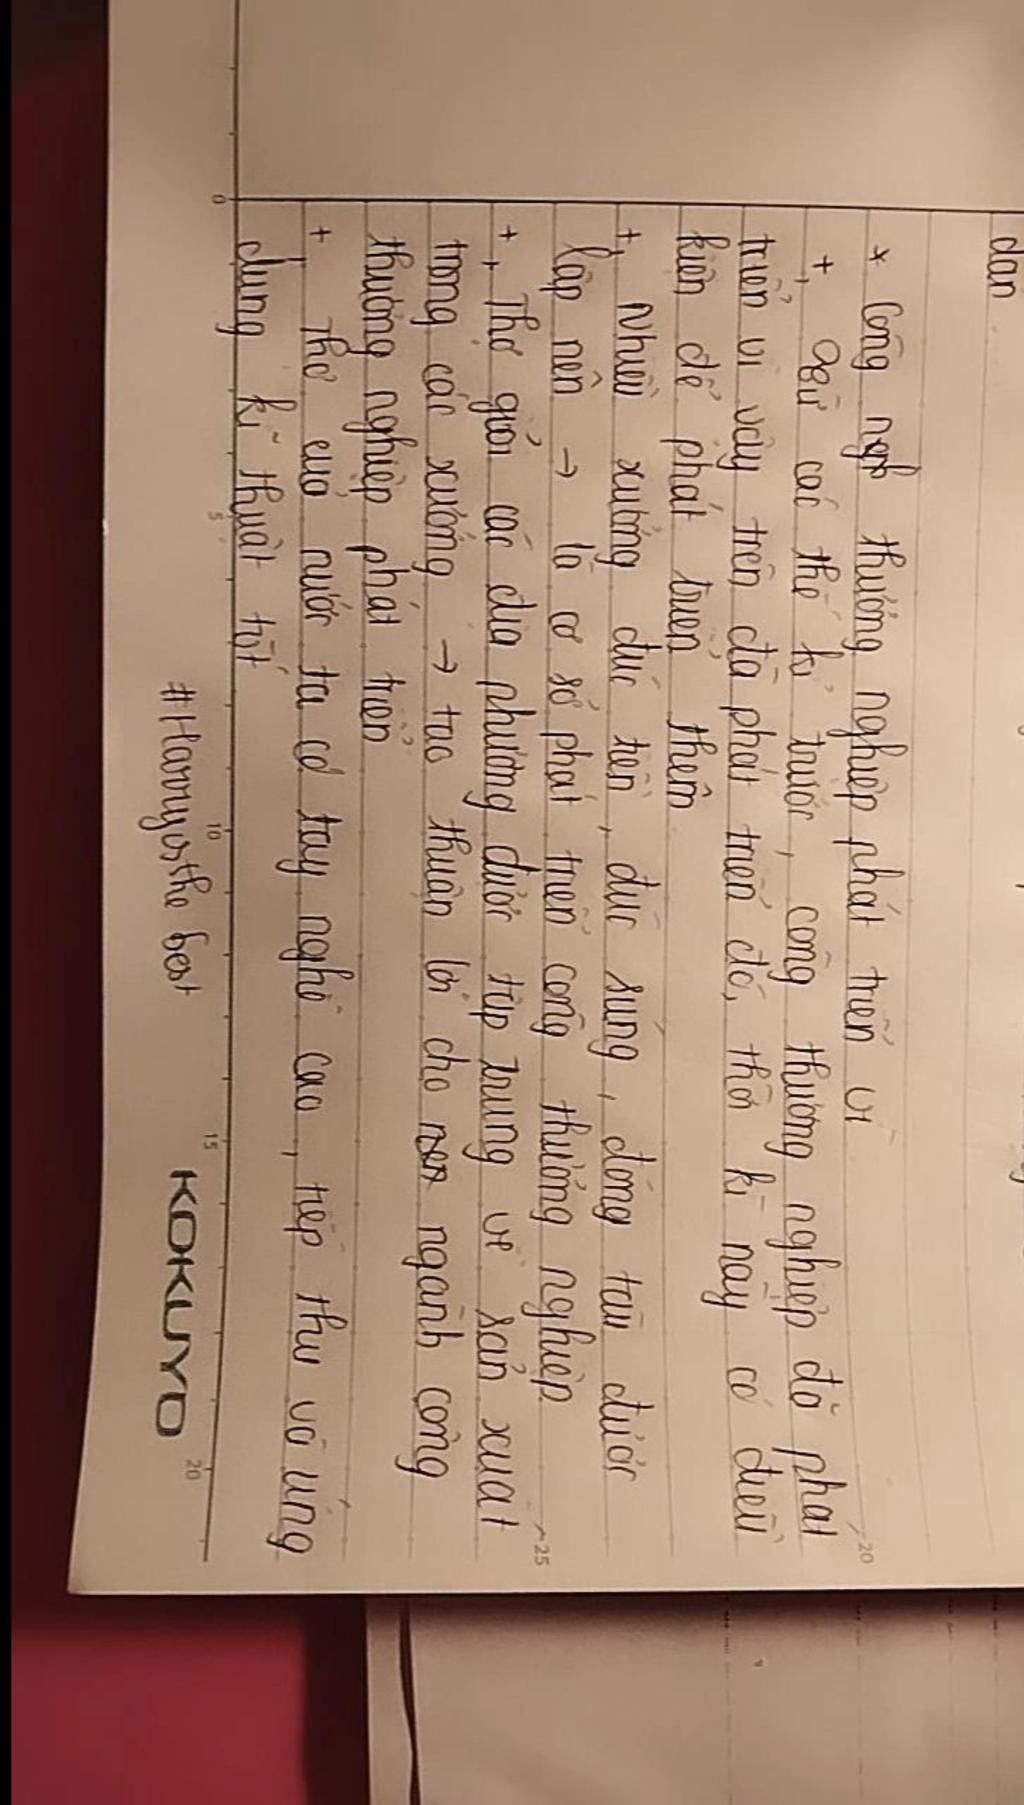 dân
* Công ngh thương nghiệp phát triển vì
+, các thế kỉ trước, công thương nghiệp đã phát
triển vì vậy trên đà phát triển đó, thời kì này có điều
kiện để phát triển thêm
+, Nhiều xưởng đúc tiền, đúc súng, đóng tàu được
lập nên → là cơ sở phát triển công thương nghiệp
+, Thợ giỏi các địa phương được tập trung về sản xuất
trong các xưởng → tạo thuận lợi cho ngành công
thương nghiệp phát triển
+, Thợ của nước ta có tay nghề cao, tiếp thu và ứng
dụng kĩ thuật tốt
#Harryisthe best
KOKUYO
0 5 10 15 20
20
25